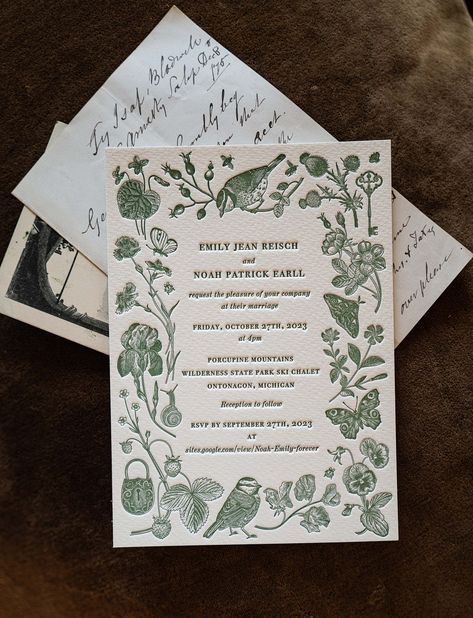 EMILY JEAN REISCH
and
NOAH PATRICK EARLL
request the pleasure of your company
at their marriage
FRIDAY, OCTOBER 27TH, 2023
at 4pm
PORCUPINE MOUNTAINS
WILDERNESS STATE PARK SKI CHALET
ONTONAGON, MICHIGAN
Reception to follow
RSVP BY SEPTEMBER 27TH, 2023
AT
sites.google.com/view/Noah-Emily-forever
that
acct.
over please